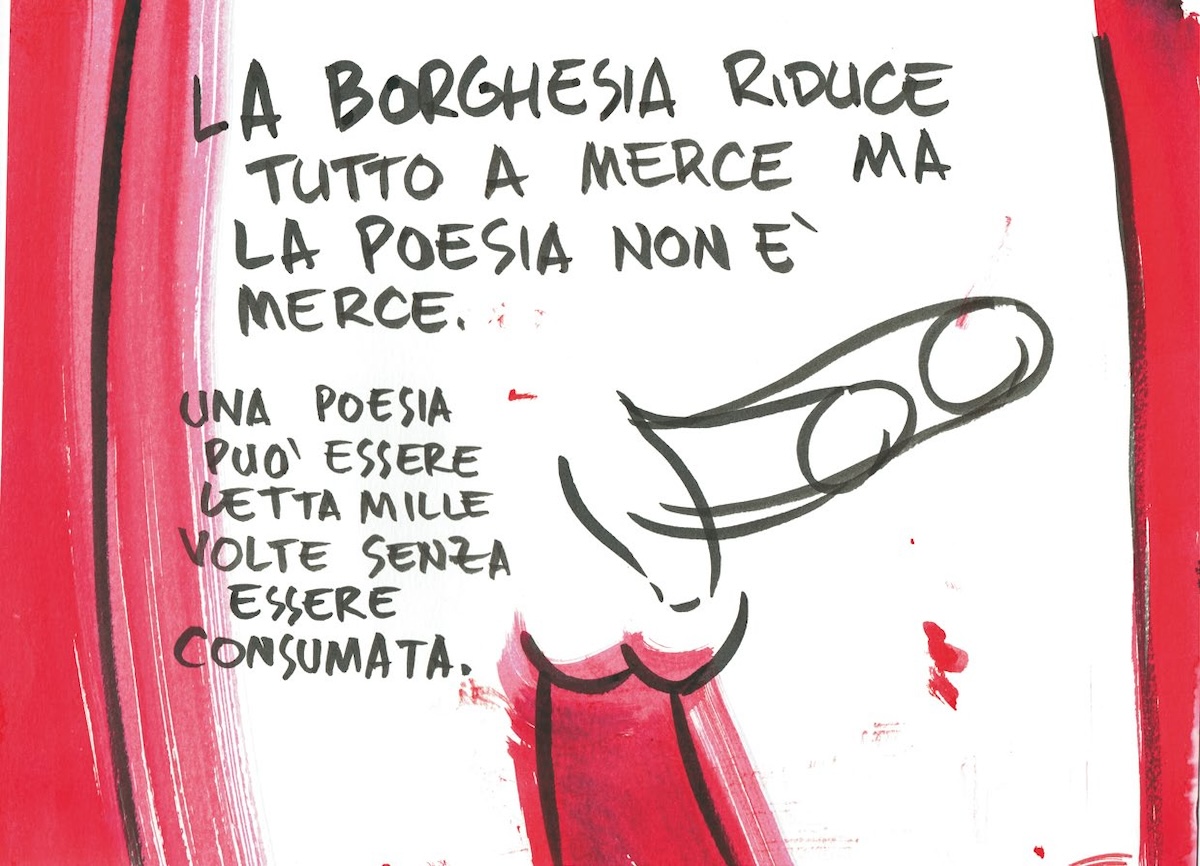 LA BORGHESIA RIDUCE
TUTTO A MERCE MA
LA POESIA NON È
MERCE.
UNA POESIA
PUO' ESSERE
LETTA MILLE
VOLTE SENZA
ESSERE
CONSUMATA.